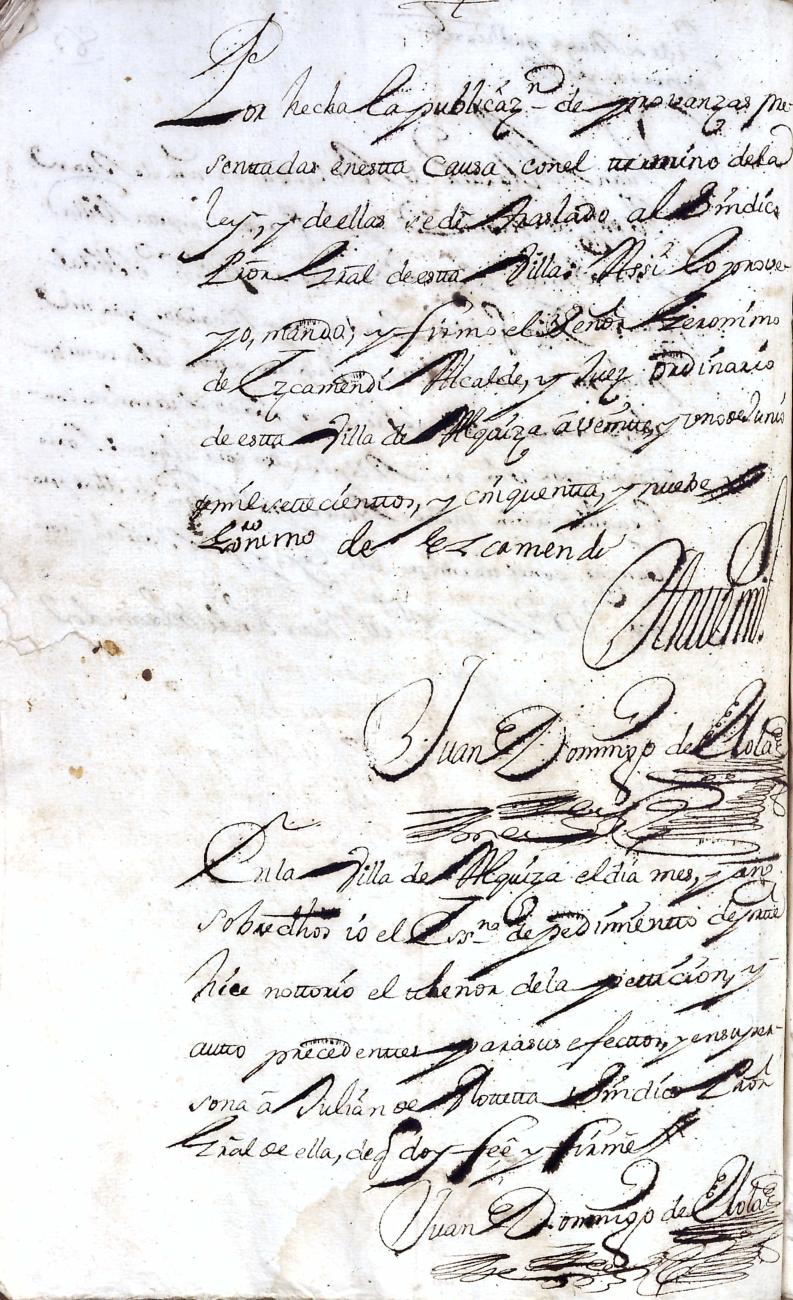 Por hecha la publicazn de provanzas pre-
sentadas enestta Causa conel termino dela
ley, y deellas sede traslado al Sindico
Pror Gral de estta Villa: Assi lo prove-
yo, mando, y firmo el Señor Geronimo
de Ezcamendi Alcalde, y Juez ordinario
de estta Villa de Alquiza a veinte, y uno de Junio
de mil settecienttos, y cinquentta, y nuebe
Geronimo de Ezcamendi
Antemi
Juan Domingo de
En la Villa de Alquiza el dia mes, y año
sobredhos io el Essno de pedimientto de parte
hice nottorio el thenor dela petticion, y
autto precedenttes para sus efecttos, y en su per-
sona a Julian de Sindico Pror
Gral de ella, de q doy feé y firmé
Juan Domingo de